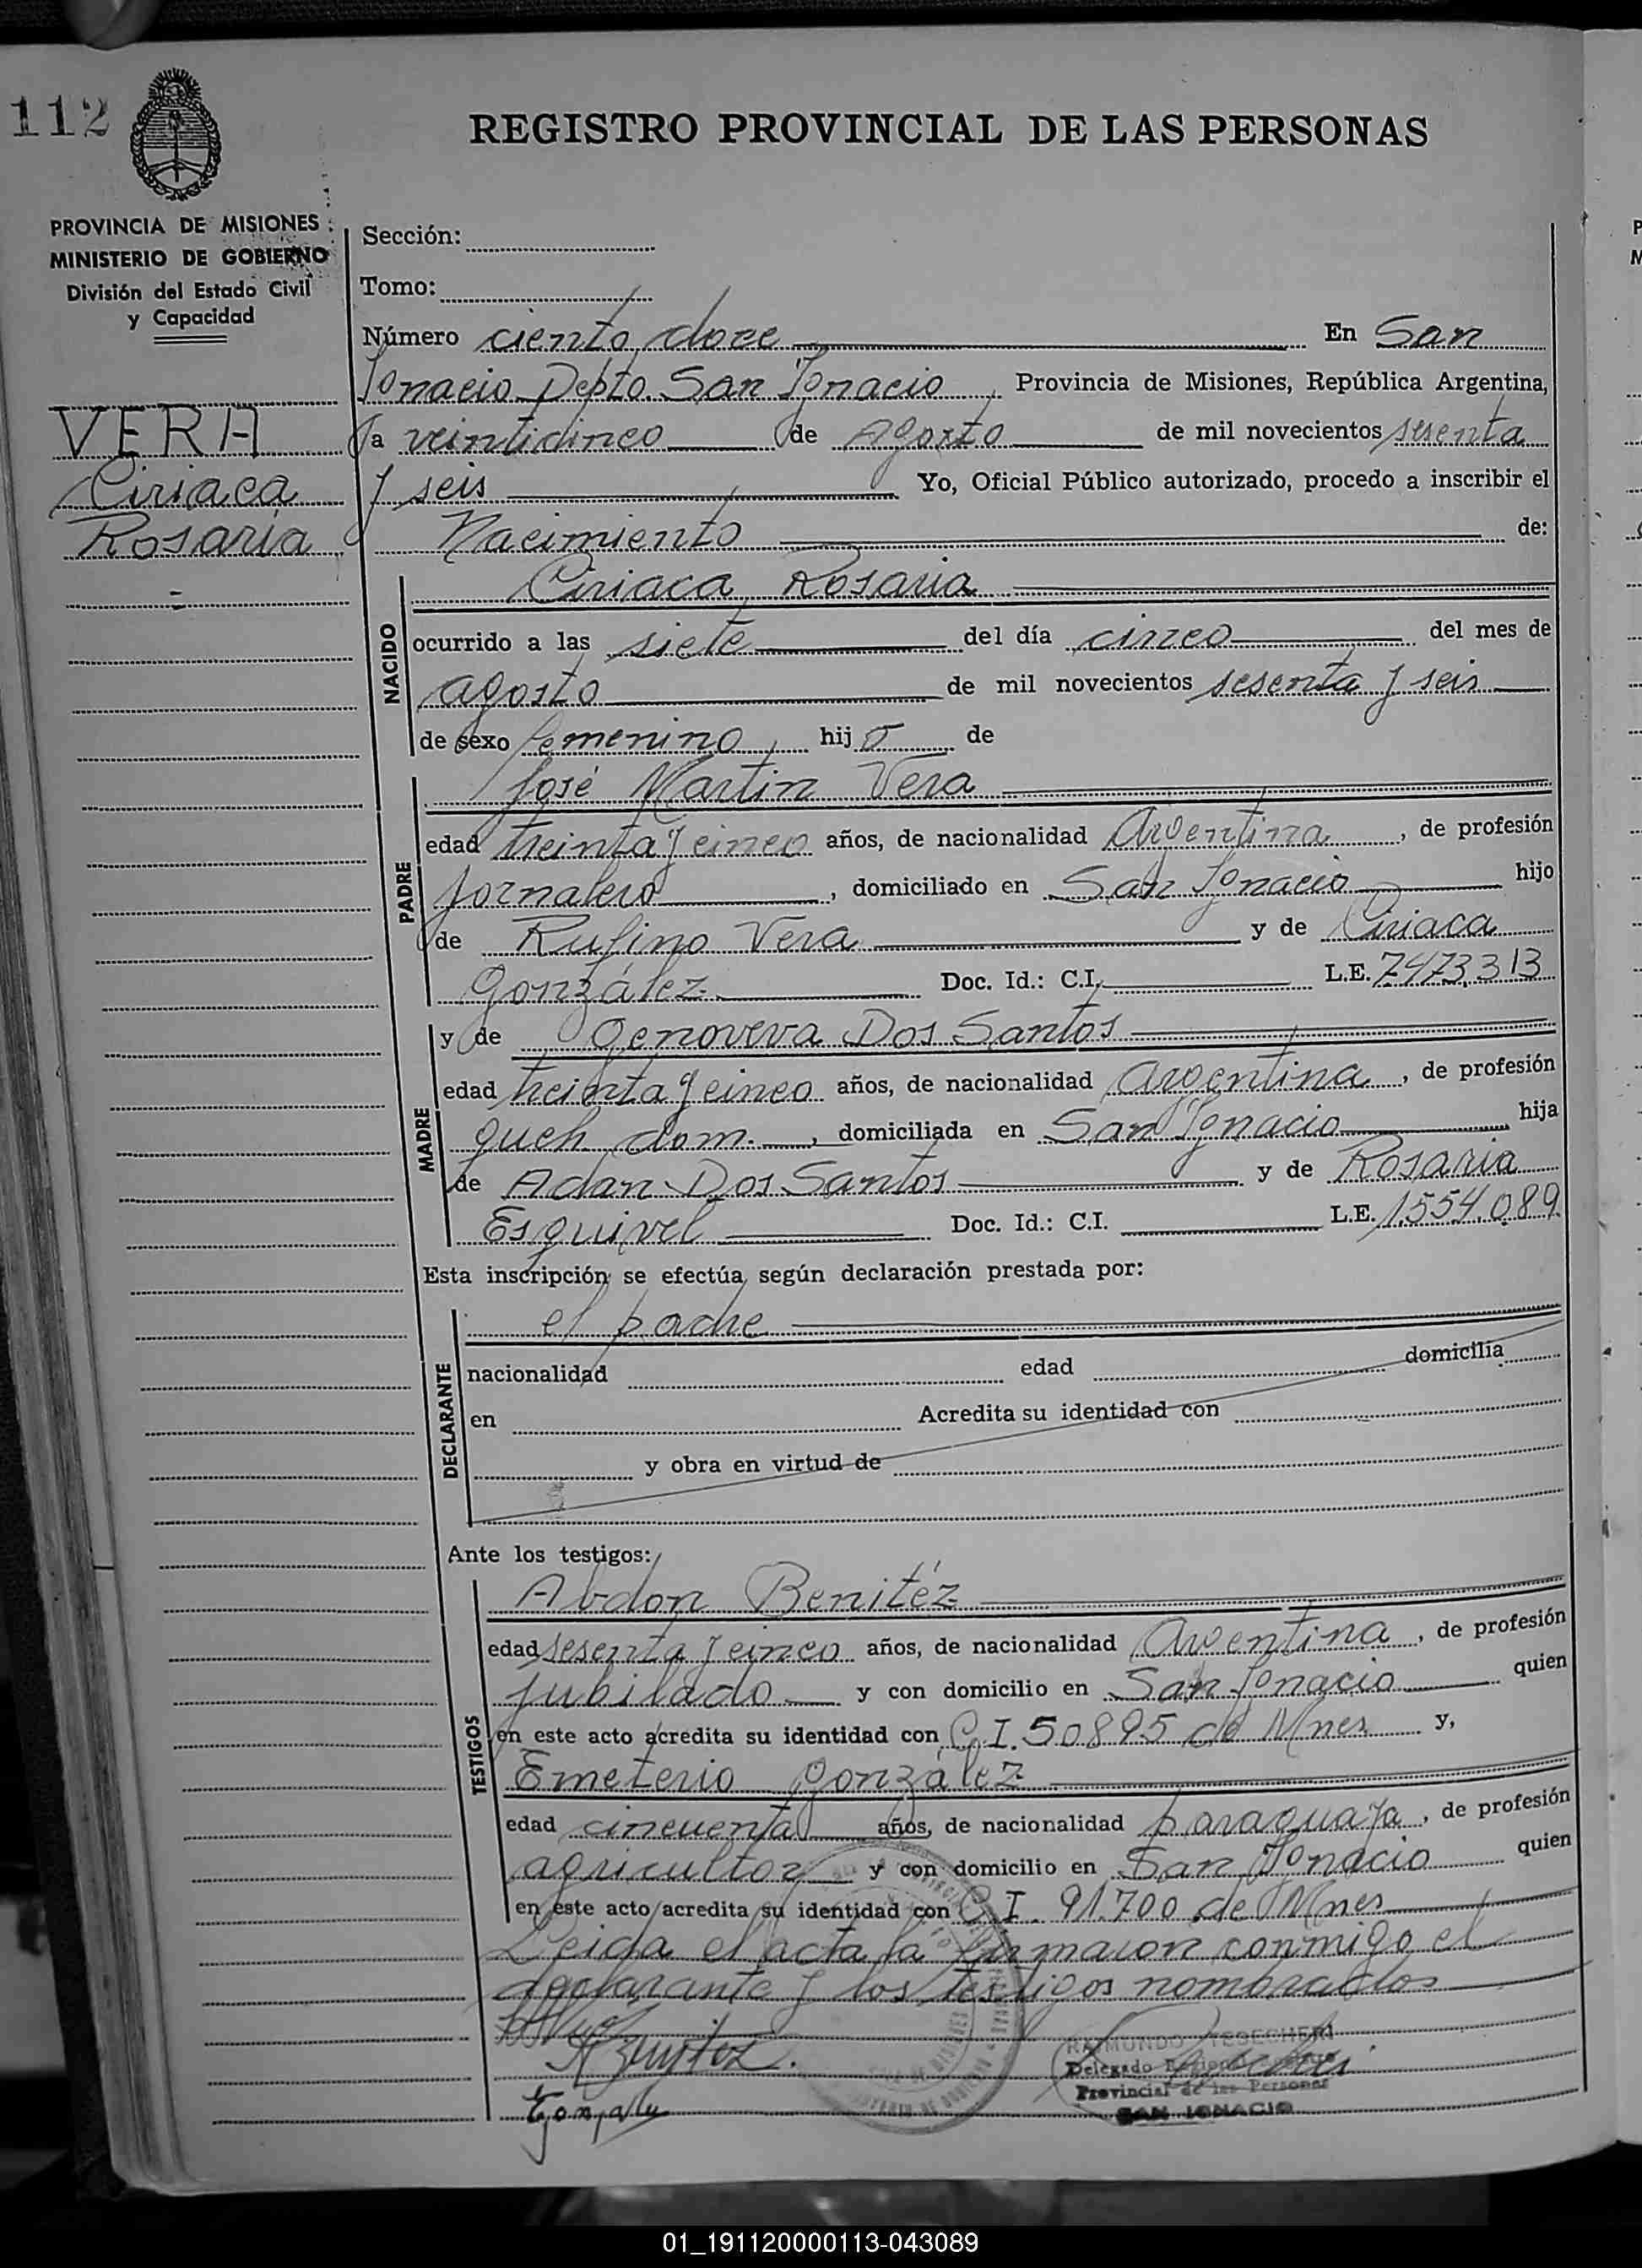 112
REGISTRO PROVINCIAL DE LAS PERSONAS
PROVINCIA DE MISIONES
MINISTERIO DE GOBIERNO
División del Estado Civil
y Capacidad
VERA
Ciriaca
Rosaria
Sección:
Tomo:
Número ciento doce En San
Ignacio Depto. San Ignacio, Provincia de Misiones, República Argentina,
a veinticinco de Agosto de mil novecientos sesenta
y seis Yo, Oficial Público autorizado, procedo a inscribir el
Nacimiento de:
NACIDO
Ciriaca Rosaria
ocurrido a las siete del día cinco del mes de
agosto de mil novecientos sesenta y seis
de sexo femenino, hij de
PADRE
José Martin Vera
edad treinta y cinco años, de nacionalidad Argentina, de profesión
jornalero, domiciliado en San Ignacio hijo
de Rufino Vera y de Ciriaca
González Doc. Id.: C.I. L.E. 7473.313
MADRE
y de Genoveva Dos Santos
edad treinta y cinco años, de nacionalidad argentina, de profesión
queh. dom., domiciliada en San Ignacio hija
de Adan Dos Santos y de Rosaria
Esquivel Doc. Id.: C.I. L.E. 1.554.089
Esta inscripción se efectúa según declaración prestada por:
DECLARANTE
el padre
nacionalidad edad domicilia
en Acredita su identidad con
y obra en virtud de
Ante los testigos:
TESTIGOS
Abdon Benitéz
edad sesenta y cinco años, de nacionalidad Argentina, de profesión
jubilado y con domicilio en San Ignacio quien
en este acto acredita su identidad con C.I. 50895 de Mnes y,
Emeterio González
edad cincuenta años, de nacionalidad paraguaya, de profesión
agricultor y con domicilio en San Ignacio quien
en este acto acredita su identidad con C.I. 91.700 de Mnes
Leida el acta la firmaron conmigo el
declarante y los testigos nombrados
RAIMUNDO
Delegado Regional
Provincial de las Personas
SAN IGNACIO
01_191120000113-043089